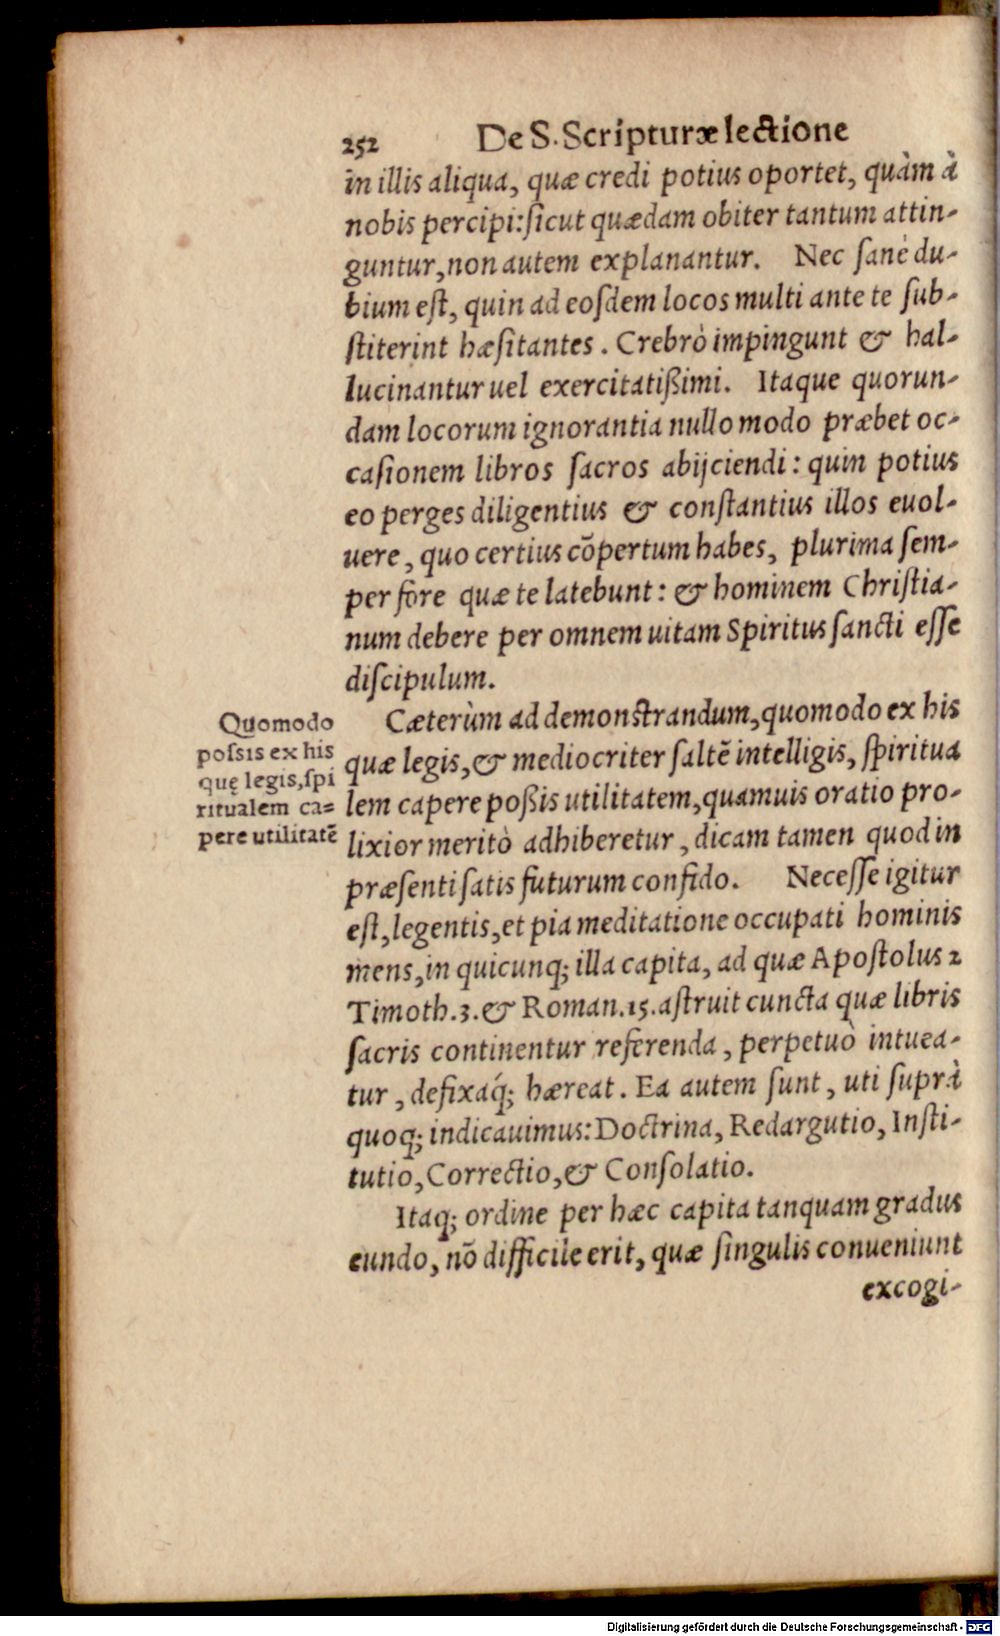 252 De S. Scripturæ lectione
in illis aliqua, quæ credi potius oportet, quàm à
nobis percipi: ſicut quædam obiter tantum attin-
guntur, non autem explanantur. Nec ſanè du-
bium eſt, quin ad eoſdem locos multi ante te ſub-
ſtiterint hæſitantes. Crebrò impingunt & hal-
lucinantur uel exercitatißimi. Itaque quorun-
dam locorum ignorantia nullo modo præbet oc-
caſionem libros ſacros abijciendi: quin potius
eo perges diligentius & conſtantius illos euol-
uere, quo certius cõpertum habes, plurima ſem-
per fore quæ te latebunt: & hominem Chriſtia-
num debere per omnem uitam Spiritus ſancti eſſe
diſcipulum.
Quomodo
poſsis ex his
quę legis, ſpi
ritualem ca=
pere utilitatẽ
Cæterùm ad demonſtrandum, quomodo ex his
quæ legis, & mediocriter ſaltẽ intelligis, ſpiritua
lem capere poßis utilitatem, quamuis oratio pro-
lixior meritò adhiberetur, dicam tamen quod in
præſenti ſatis futurum confido. Neceſſe igitur
eſt, legentis, et pia meditatione occupati hominis
mens, in quicunq; illa capita, ad quæ Apoſtolus 2
Timoth. 3. & Roman. 15. aſtruit cuncta quæ libris
ſacris continentur referenda, perpetuò intuea-
tur, defixaq́; hæreat. Ea autem ſunt, uti ſuprà
quoq; indicauimus: Doctrina, Redargutio, Inſti-
tutio, Correctio, & Conſolatio.
Itaq; ordine per hæc capita tanquam gradus
eundo, nõ difficile erit, quæ ſingulis conueniunt
excogi-
Digitalisierung gefördert durch die Deutsche Forschungsgemeinschaft - DFG